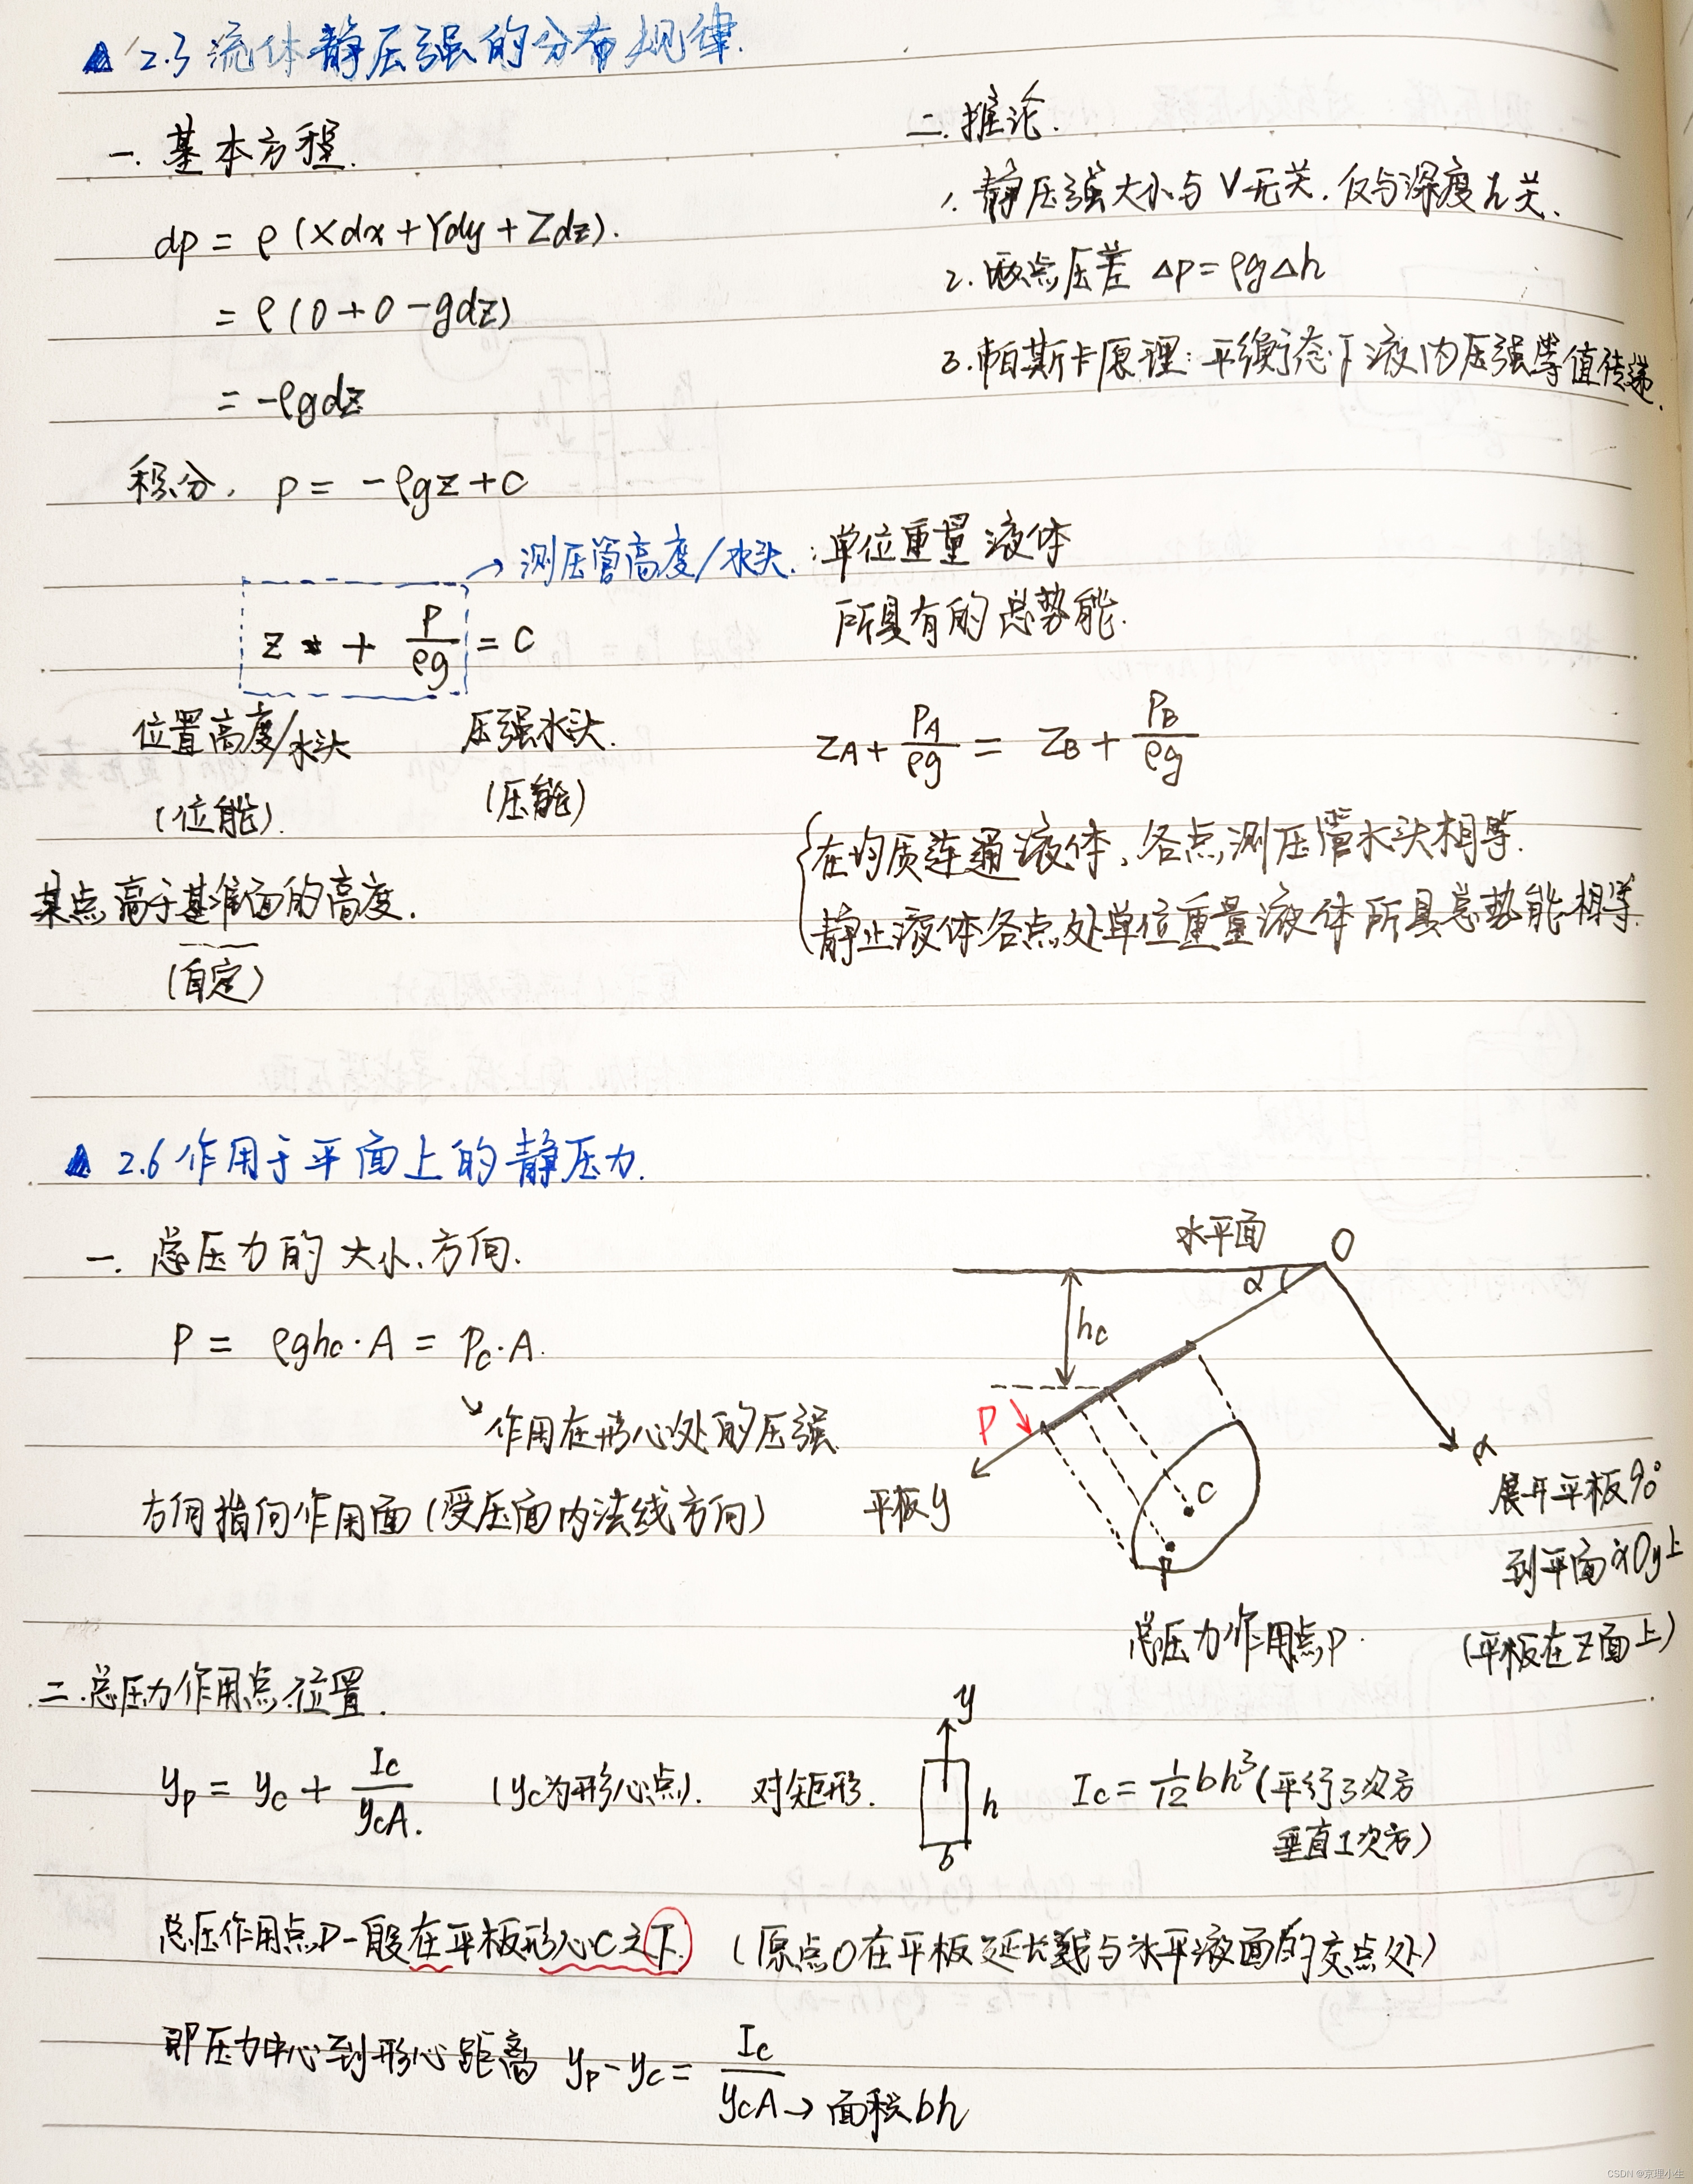 2.3 流体静压强的分布规律.
一. 基本方程.
dp = ρ(Xdx+Ydy+Zdz).
= ρ(0+0-gdz)
= -ρgdz
积分, p = -ρgz+C
二. 推论.
1. 静压强大小与V无关, 仅与深度h关.
2. 两点压差 Δp=ρgΔh
3. 帕斯卡原理: 平衡态下液内压强等值传递.
→ 测压管高度/水头. : 单位重量液体
所具有的总势能.
z + p/ρg = C
位置高度/水头
(位能).
压强水头.
(压能)
某点高于基准面的高度.
(自定)
zA + pA/ρg = zB + pB/ρg
在均质连通液体, 各点测压管水头相等.
静止液体各点处单位重量液体所具总势能相等.
2.6 作用于平面上的静压力.
一. 总压力的大小、方向.
P = ρghc·A = Pc·A.
↘ 作用在形心处的压强
方向指向作用面 (受压面内法线方向)
水平面
O
α
hc
P
平板y
C
P
x
展开平板90°
到平面xOy上
(平板在Z面上)
总压力作用点P.
二. 总压力作用点位置.
yp = yc + Ic/ycA. (yc为形心点). 对矩形.
y
h
b
Ic = 1/12 bh³ (平行3次方
垂直1次方)
总压作用点P一般在平板形心C之下. (原点O在平板延长线与水平液面的交点处)
即压力中心到形心距离 yp-yc = Ic/ycA → 面积bh
CSDN @京理小生